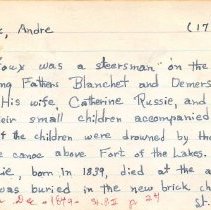 , Andre (17
oux was a steersman on the
ng Fathers Blanchet and Demers
His wife, Catherine Russie, and
eir small children accompanied
f the children were drowned by the
e canoe above Fort of the Lakes.
ie, born in 1839, died at the a
was buried in the new brick ch
Dec. 1849 St. P I p 24
St.